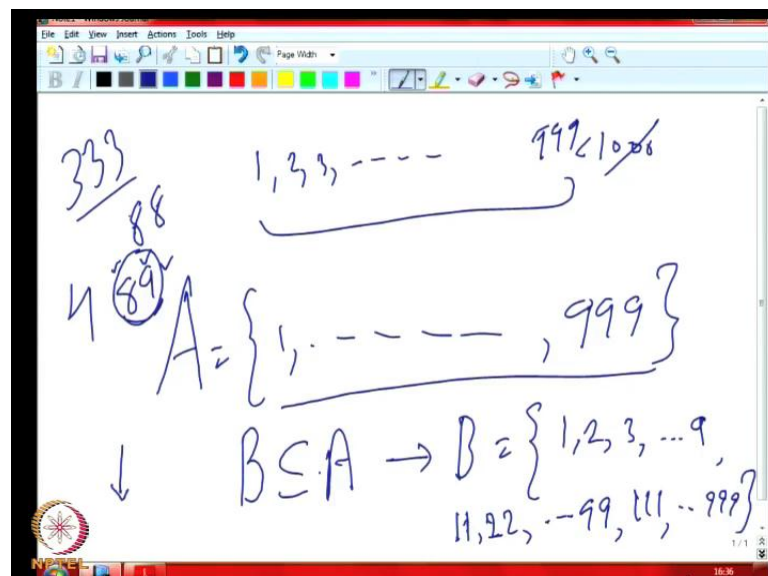 File Edit View Insert Actions Tools Help
Page Width
B I
333
1, 2, 3, ---- 999 < 1000
88
4 89 A = { 1, . - - - - , 999 }
B ⊆ A → B = { 1, 2, 3, ... 9,
11, 22, . - 99, 111, .. 999 }
1/1
NPTEL
16:36